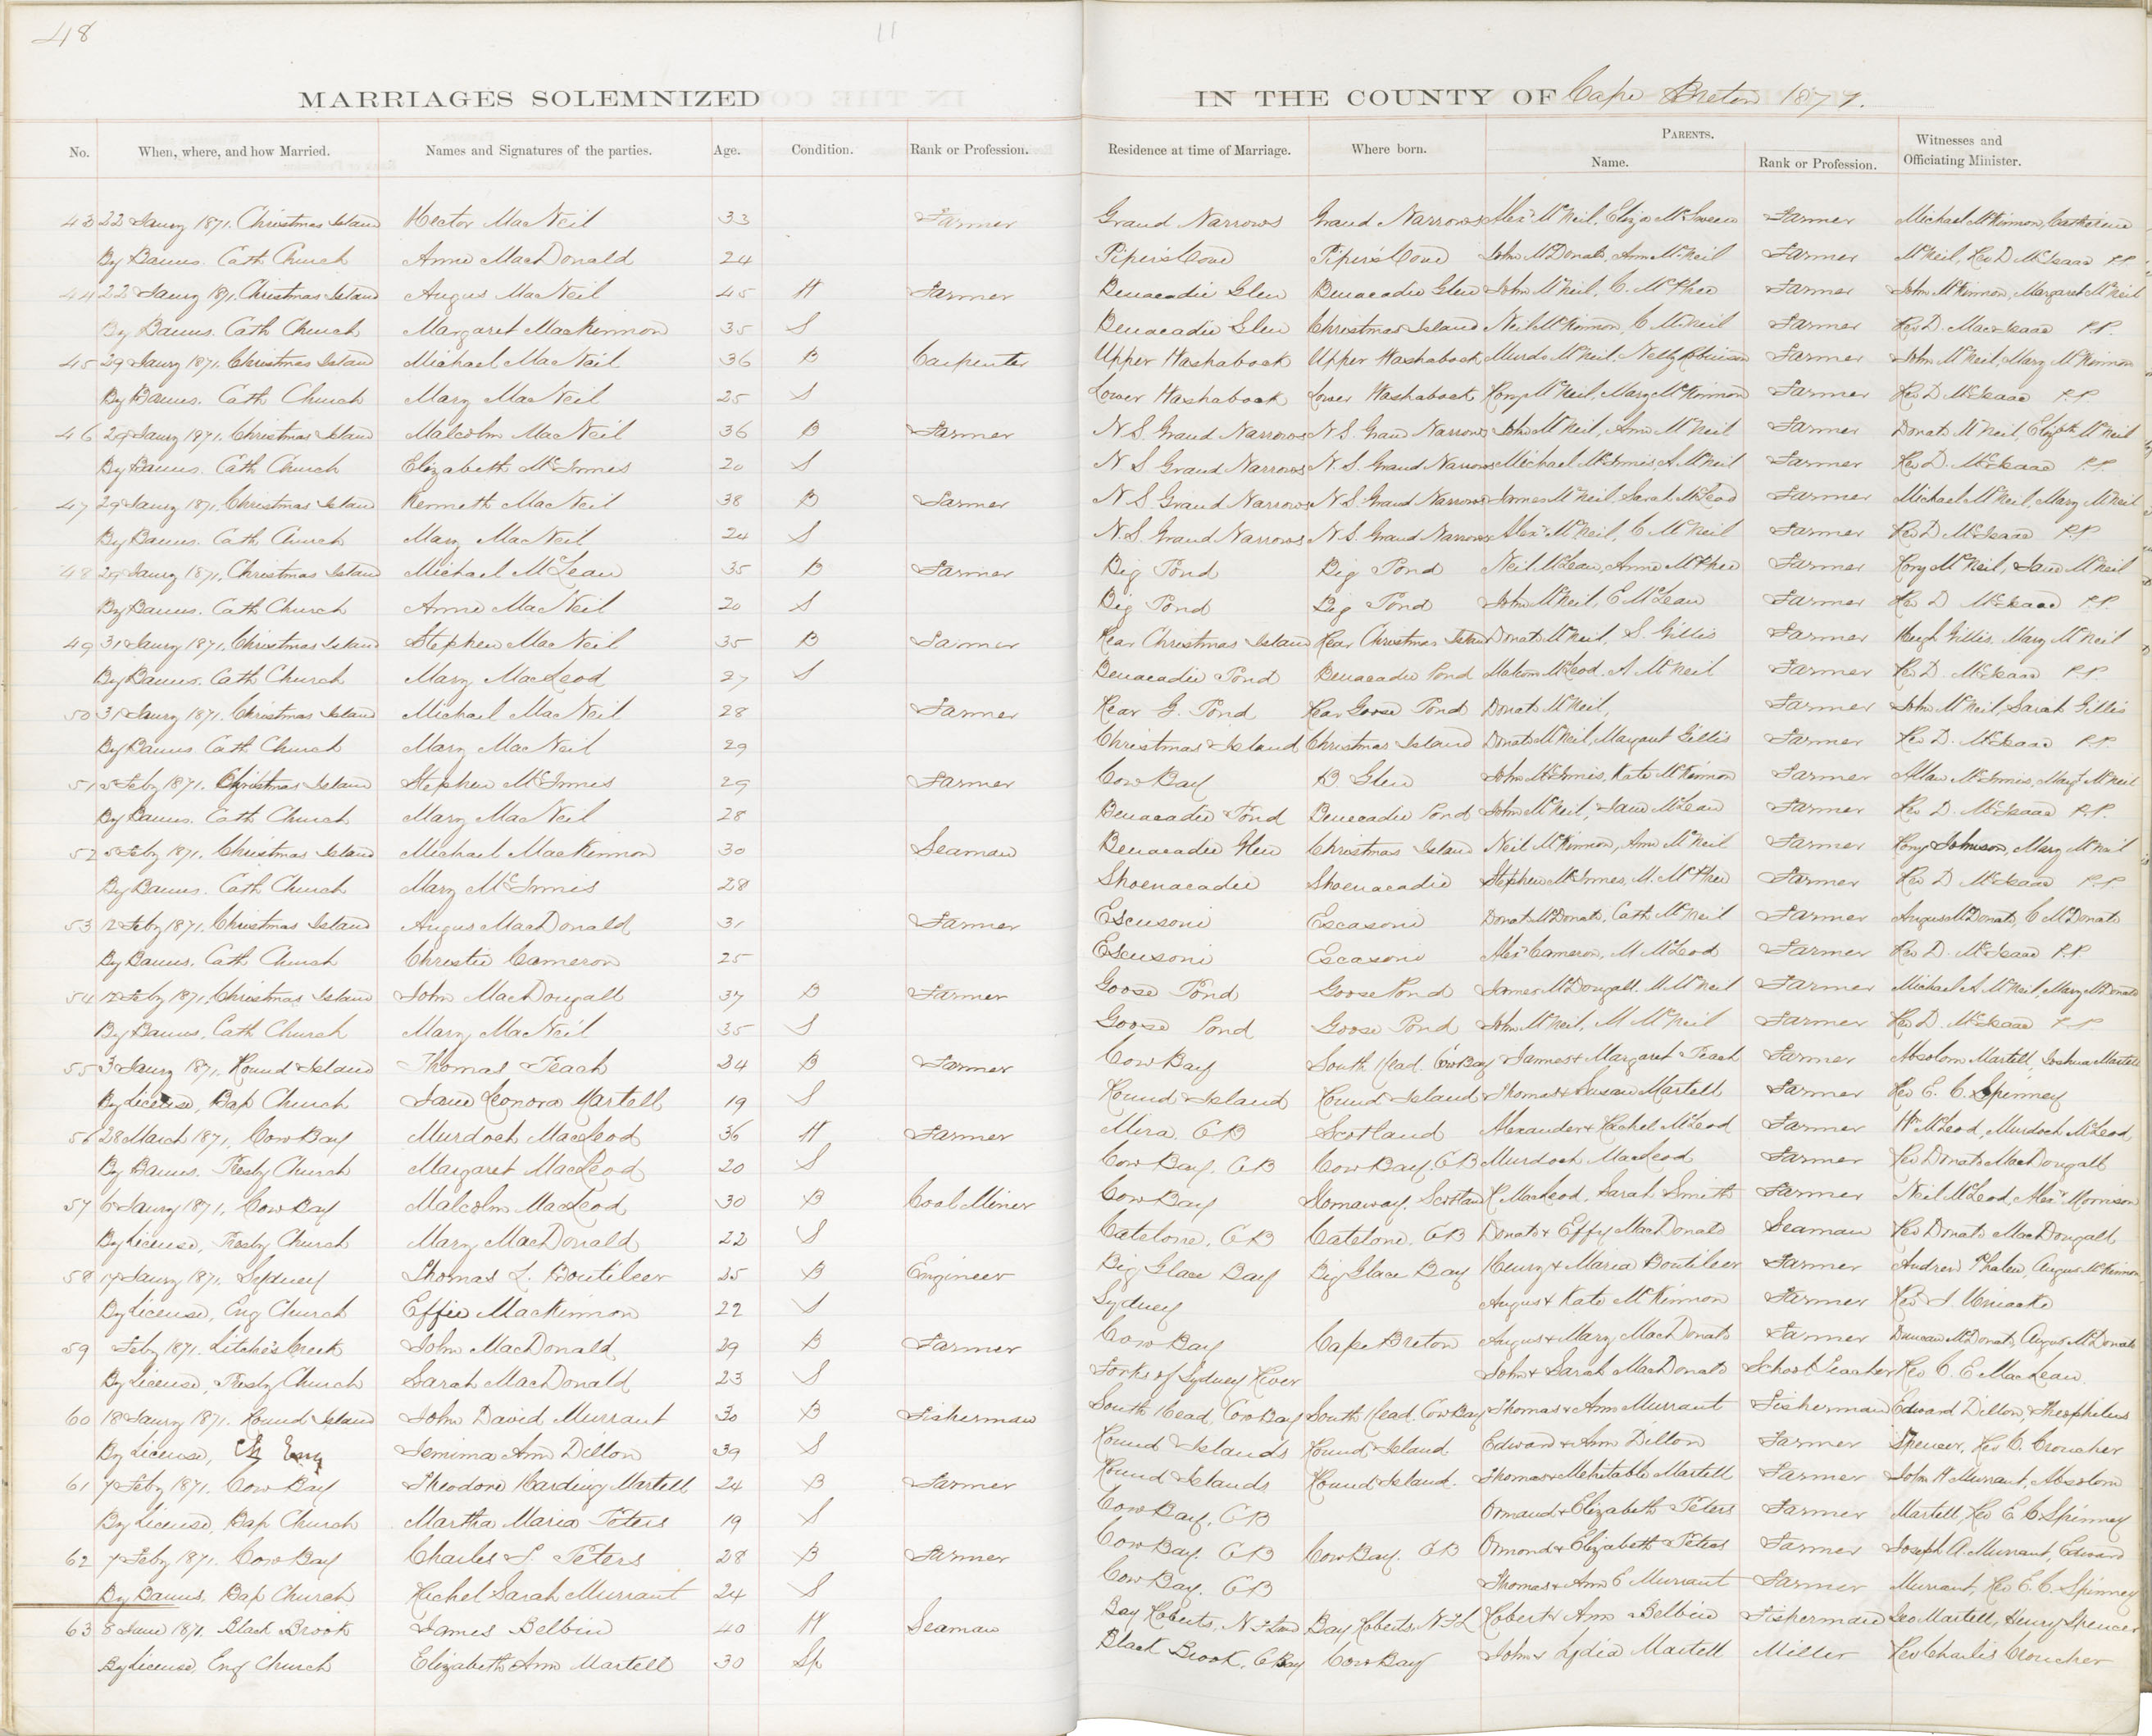 48
11
MARRIAGES SOLEMNIZED IN THE COUNTY OF Cape Breton 1871.
No. When, where, and how Married. Names and Signatures of the parties. Age. Condition. Rank or Profession. Residence at time of Marriage. Where born. PARENTS. Name. Rank or Profession. Witnesses and Officiating Minister.
43 22 Jaury 1871. Christmas Island Hector MacNeil 33 Farmer Grand Narrows Grand Narrows Alexr McNeil, Eliza McSween Farmer Michael McKinnon, Catherine
By Banns. Cath Church Anne MacDonald 24 Pipers Cove Pipers Cove John McDonald, Ann McNeil Farmer McNeil, Rev D McIsaac P.P.
44 22 Jaury 1871. Christmas Island Angus MacNeil 45 H Farmer Benacadie Glen Benacadie Glen John McNeil, C. McPhee Farmer John McKinnon, Margaret McNeil
By Banns. Cath Church Margaret MacKinnon 35 S Benacadie Glen Christmas Island Neil McKinnon, C McNeil Farmer Rev D. MacIsaac P.P.
45 29 Jaury 1871. Christmas Island Michael MacNeil 36 B Carpenter Upper Washaback Upper Washaback Murdo McNeil, Nelly Robinson Farmer John McNeil, Mary McKinnon
By Banns. Cath Church Mary MacNeil 25 S Lower Washaback Lower Washaback Rory McNeil, Mary McKinnon Farmer Rev D McIsaac P.P.
46 29 Jaury 1871. Christmas Island Malcolm MacNeil 36 B Farmer N S. Grand Narrows N S. Grand Narrows John McNeil, Ann McNeil Farmer Donald McNeil, Elizth McNeil
By Banns. Cath Church Elizabeth McInnis 20 S N S Grand Narrows N. S. Grand Narrows Michael McInnis, A. McNeil Farmer Rev D. McIsaac P.P.
47 29 Jaury 1871. Christmas Island Kenneth MacNeil 38 B Farmer N S. Grand Narrows N S. Grand Narrows James McNeil, Sarah McLeod Farmer Michael McNeil, Mary McNeil
By Banns. Cath Church Mary MacNeil 24 S N. S. Grand Narrows N S. Grand Narrows Alexr McNeil, C McNeil Farmer Rev D McIsaac P.P.
48 29 Jaury 1871. Christmas Island Michael McLean 35 B Farmer Big Pond Big Pond Neil McLean, Anne McPhee Farmer Rory McNeil, Jane McNeil
By Banns. Cath Church Anne MacNeil 20 S Big Pond Big Pond John McNeil, E McLean Farmer Rev D McIsaac P.P.
49 31 Jaury 1871. Christmas Island Stephen MacNeil 35 B Farmer Rear Christmas Island Rear Christmas Island Donald McNeil, S. Gillis Farmer Hugh Gillis, Mary McNeil
By Banns. Cath Church Mary MacLeod 27 S Benacadie Pond Benacadie Pond Malcom McLeod, A McNeil Farmer Rev D. McIsaac P.P.
50 31 Jaury 1871. Christmas Island Michael MacNeil 28 Farmer Rear G. Pond Rear Goose Pond Donald McNeil, Farmer John McNeil, Sarah Gillis
By Banns Cath Church Mary MacNeil 29 Christmas Island Christmas Island Donald McNeil, Margaret Gillis Farmer Rev D. McIsaac P.P.
51 5 Feby 1871. Christmas Island Stephen McInnis 29 Farmer Cow Bay B. Glen John McInnis, Kate McKinnon Farmer Allan McInnis, Margt McNeil
By Banns. Cath Church Mary MacNeil 28 Benacadie Pond Benecadie Pond John McNeil, Jane McLean Farmer Rev D. McIsaac P.P.
52 5 Feby 1871. Christmas Island Michael MacKinnon 30 Seaman Benacadie Glen Christmas Island Neil McKinnon, Ann McNeil Farmer Rory Johnson, Mary McNeil
By Banns. Cath Church Mary McInnis 28 Shoenacadie Shoenacadie Stephen McInnes, M. McPhee Farmer Rev D McIsaac P.P.
53 12 Feby 1871. Christmas Island Angus MacDonald 31 Farmer Escusoni Escasoni Donald McDonald, Cath McNeil Farmer Angus McDonald, C McDonald
By Banns. Cath Church Christie Cameron 25 Escusoni Escasoni Alexr Cameron, M McLeod Farmer Rev D. McIsaac P.P.
54 12 Feby 1871. Christmas Island John MacDougall 37 B Farmer Goose Pond Goose Pond James McDougall, M McNeil Farmer Michael A McNeil, Mary McDonald
By Banns. Cath Church Mary MacNeil 35 S Goose Pond Goose Pond John McNeil, M McNeil Farmer Rev D. McIsaac P.P
55 3 Jaury 1871. Round Island Thomas Peach 24 B Farmer Cow Bay South Head. Cow Bay James & Margaret Peach Farmer Absolom Martell, Joshua Martell
By License, Bap Church Jane Leonora Martell 19 S Round Island Round Island Thomas & Susan Martell Farmer Rev E. C. Spinney
56 28 March 1871, Cow Bay Murdoch MacLeod 36 H Farmer Mira. CB Scotland Alexander & Rachel McLeod Farmer Wm McLeod, Murdoch McLeod
By Banns. Presby Church Margaret MacLeod 20 S Cow Bay. CB Cow Bay. CB Murdoch MacLeod Farmer Rev Donald MacDougall
57 6 Jaury 1871, Cow Bay Malcolm MacLeod 30 B Coal Miner Cow Bay Stornaway. Scotland R MacLeod, Sarah Smith Farmer Neil McLeod, Alexr Morrison
By License, Presby Church Mary MacDonald 22 S Catelone. CB Catelone. CB Donald & Effy MacDonald Seaman Rev Donald MacDougall
58 17 Jaury 1871. Sydney Thomas L. Boutileer 25 B Engineer Big Glace Bay Big Glace Bay Henry & Maria Boutileer Farmer Andrew Phalen, Angus McKinnon
By License, Eng Church Effie MacKinnon 22 S Sydney Angus & Kate McKinnon Farmer Rev J. Uniacke
59 Feby 1871. Litche's Creek John MacDonald 29 B Farmer Cow Bay Cape Breton Angus & Mary MacDonald Farmer Duncan McDonald, Angus McDonald
By License, Presby Church Sarah MacDonald 23 S Forks of Sydney River John & Sarah MacDonald School Teacher Rev C. E MacLean.
60 18 Jaury 1871. Round Island John David Murrant 30 B Fisherman South Head, Cow Bay South Head. Cow Bay Thomas & Ann Murrant Fisherman Edward Dillon, Theophilus
By License, Ch Eng Jemima Ann Dillon 39 S Round Islands Round Island. Edward & Ann Dillon Farmer Spencer, Rev C. Croucher
61 7 Feby 1871. Cow Bay Theodore Harding Martell 24 B Farmer Round Islands Round Island. Thomas & Mehitable Martell Farmer John H Murrant, Absolom
By License, Bap Church Martha Maria Peters 19 S Cow Bay. CB Ormand & Elizabeth Peters Farmer Martell, Rev E. C Spinney
62 7 Feby 1871. Cow Bay Charles S. Peters 28 B Farmer Cow Bay. CB Cow Bay. CB Ormond & Elizabeth Peters Farmer Joseph A. Murrant, Edward
By Banns, Bap Church Richel Sarah Murrant 24 S Cow Bay. CB Thomas & Ann E Murrant Farmer Murrant, Rev E. C. Spinney
63 8 June 1871. Black Brook James Belbin 40 H Seaman Bay Roberts, N. F Land Bay Roberts, N F L Robert & Ann Belbin Fisherman Geo Martell, Henry Spencer
By License, Eng Church Elizabeth Ann Martell 30 Sp Black Brook, C Bay Cow Bay John & Lydia Martell Miller Rev Charles Croucher